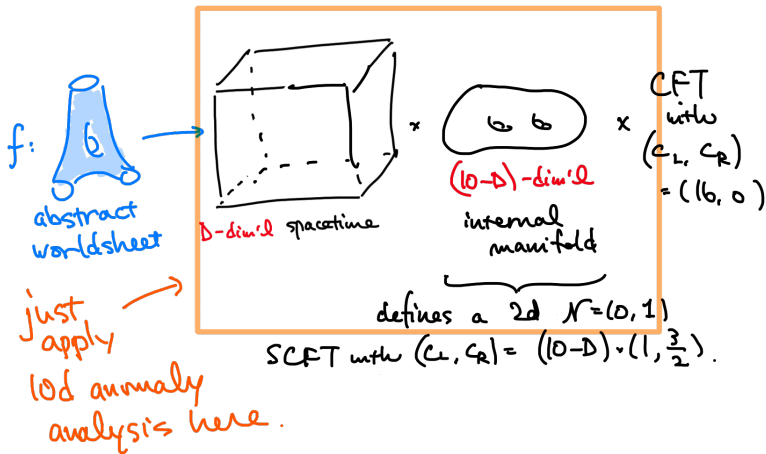 f:
abstract
worldsheet
D-dim'l spacetime
×
(10-D)-dim'l
internal
manifold
×
CFT
with
(c_L, c_R)
= (16, 0)
defines a 2d N=(0,1)
SCFT with (c_L, c_R) = (10-D)·(1, 3/2).
just
apply
10d anomaly
analysis here.